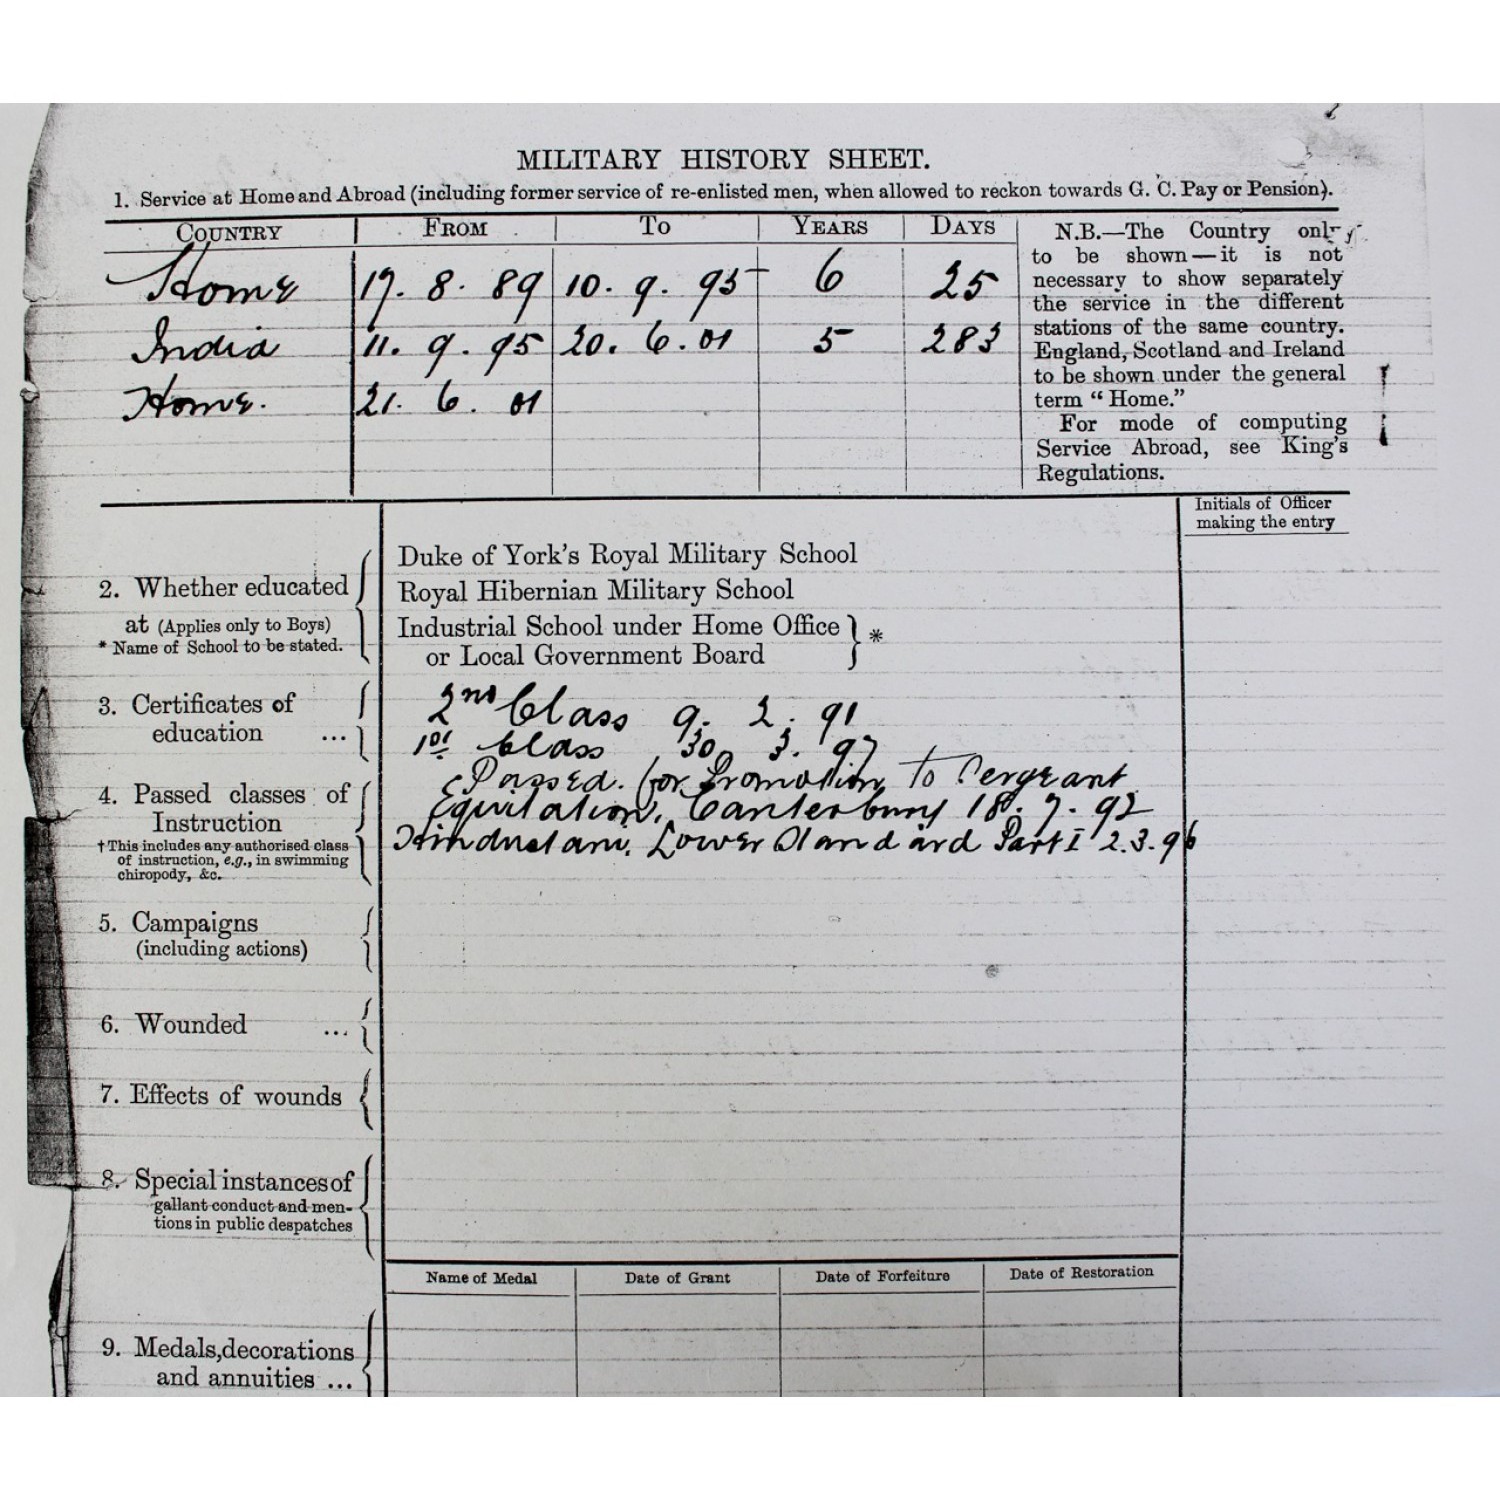 MILITARY HISTORY SHEET.
1. Service at Home and Abroad (including former service of re-enlisted men, when allowed to reckon towards G. C. Pay or Pension).
COUNTRY FROM TO YEARS DAYS
Home 17. 8. 89 10. 9. 95 6 25
India 11. 9. 95 20. 6. 01 5 283
Home. 21. 6. 01
N.B.—The Country only
to be shown—it is not
necessary to show separately
the service in the different
stations of the same country.
England, Scotland and Ireland
to be shown under the general
term "Home."
For mode of computing
Service Abroad, see King's
Regulations.
Initials of Officer
making the entry
2. Whether educated
at (Applies only to Boys)
* Name of School to be stated.
Duke of York's Royal Military School
Royal Hibernian Military School
Industrial School under Home Office
or Local Government Board
*
3. Certificates of
education ...
2nd Class 9. 2. 91
1st Class 30 3. 97
4. Passed classes of
Instruction
† This includes any authorised class
of instruction, e.g., in swimming
chiropody, &c.
Passed. for Promotion to Sergeant
Equitation, Canterbury 18. 7. 92
Hindustani, Lower Standard Part I 2.3.96
5. Campaigns
(including actions)
6. Wounded ...
7. Effects of wounds
8. Special instances of
gallant conduct and men-
tions in public despatches
Name of Medal Date of Grant Date of Forfeiture Date of Restoration
9. Medals, decorations
and annuities ...